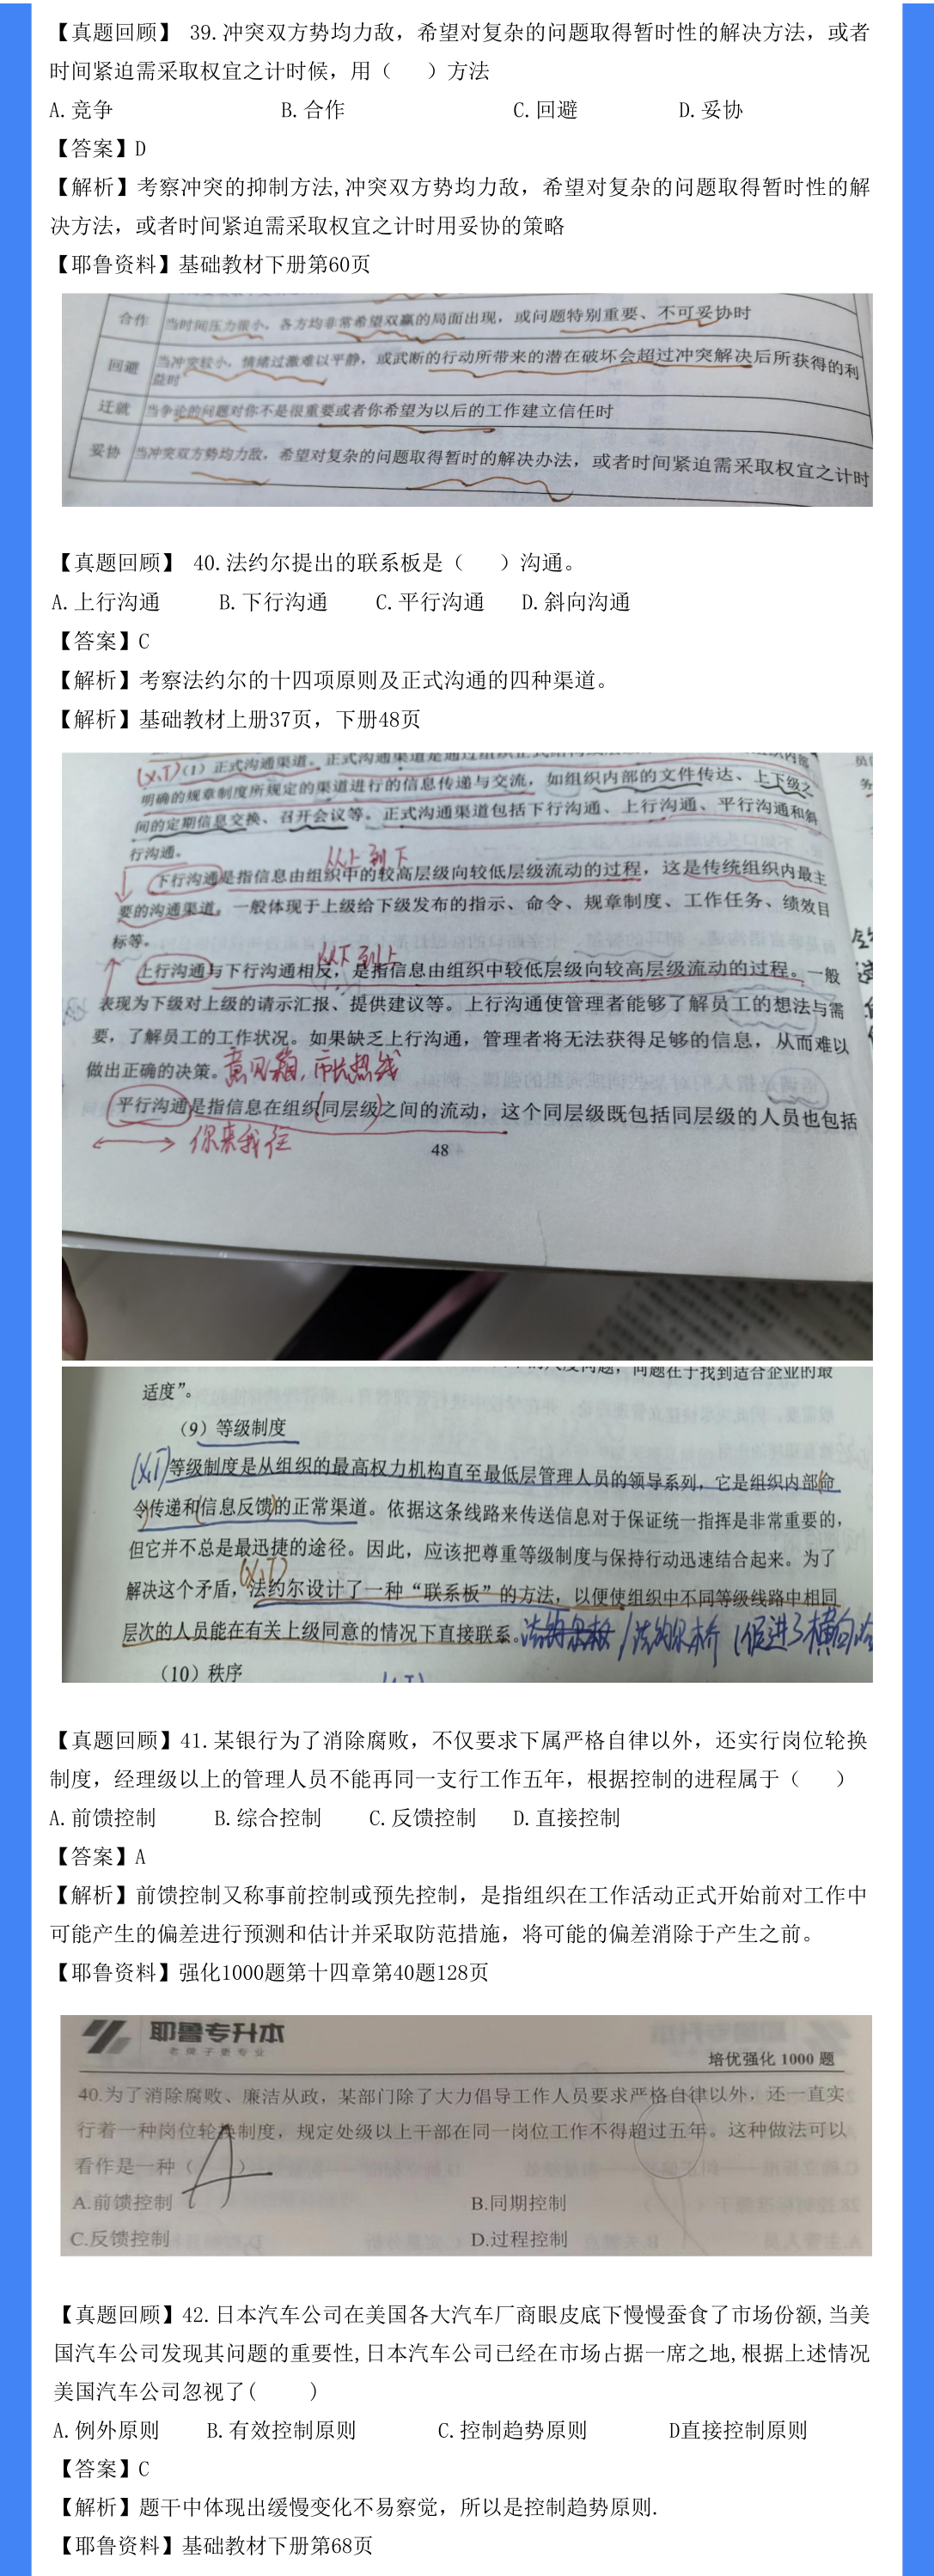 【真题回顾】 39.冲突双方势均力敌，希望对复杂的问题取得暂时性的解决方法，或者
时间紧迫需采取权宜之计时候，用（　）方法
A.竞争 B.合作 C.回避 D.妥协
【答案】D
【解析】考察冲突的抑制方法,冲突双方势均力敌，希望对复杂的问题取得暂时性的解
决方法，或者时间紧迫需采取权宜之计时用妥协的策略
【耶鲁资料】基础教材下册第60页
合作 当时间压力很小，各方均非常希望双赢的局面出现，或问题特别重要、不可妥协时
回避 当冲突较小，情绪过激难以平静，或武断的行动所带来的潜在破坏会超过冲突解决后所获得的利
益时
迁就 当争论的问题对你不是很重要或者你希望为以后的工作建立信任时
妥协 当冲突双方势均力敌，希望对复杂的问题取得暂时的解决办法，或者时间紧迫需采取权宜之计时
【真题回顾】 40.法约尔提出的联系板是（　）沟通。
A.上行沟通 B.下行沟通 C.平行沟通 D.斜向沟通
【答案】C
【解析】考察法约尔的十四项原则及正式沟通的四种渠道。
【解析】基础教材上册37页，下册48页
(X,T)(1) 正式沟通渠道。正式沟通渠道是通过组织正式
明确的规章制度所规定的渠道进行的信息传递与交流，如组织内部的文件传达、上下级之
间的定期信息交换、召开会议等。正式沟通渠道包括下行沟通、上行沟通、平行沟通和斜
行沟通。
从上到下
下行沟通是指信息由组织中的较高层级向较低层级流动的过程，这是传统组织内最主
要的沟通渠道。一般体现于上级给下级发布的指示、命令、规章制度、工作任务、绩效目
标等。
从下到上
上行沟通与下行沟通相反，是指信息由组织中较低层级向较高层级流动的过程。一般
表现为下级对上级的请示汇报、提供建议等。上行沟通使管理者能够了解员工的想法与需
要，了解员工的工作状况。如果缺乏上行沟通，管理者将无法获得足够的信息，从而难以
做出正确的决策。意见箱，市长热线
平行沟通是指信息在组织(同层级)之间的流动，这个同层级既包括同层级的人员也包括
你来我往
48
问题在于找到适合企业的最
适度”。
（9）等级制度
(X,T)等级制度是从组织的最高权力机构直至最低层管理人员的领导系列，它是组织内部(命
令)传递和(信息反馈)的正常渠道。依据这条线路来传送信息对于保证统一指挥是非常重要的，
但它并不总是最迅捷的途径。因此，应该把尊重等级制度与保持行动迅速结合起来。为了
(X,T)
解决这个矛盾，法约尔设计了一种“联系板”的方法，以便使组织中不同等级线路中相同
层次的人员能在有关上级同意的情况下直接联系。法约尔板/法约尔桥（促进了横向
（10）秩序
【真题回顾】41.某银行为了消除腐败，不仅要求下属严格自律以外，还实行岗位轮换
制度，经理级以上的管理人员不能再同一支行工作五年，根据控制的进程属于（　）
A.前馈控制 B.综合控制 C.反馈控制 D.直接控制
【答案】A
【解析】前馈控制又称事前控制或预先控制，是指组织在工作活动正式开始前对工作中
可能产生的偏差进行预测和估计并采取防范措施，将可能的偏差消除于产生之前。
【耶鲁资料】强化1000题第十四章第40题128页
耶鲁专升本
老牌子更专业
培优强化 1000 题
40.为了消除腐败、廉洁从政，某部门除了大力倡导工作人员要求严格自律以外，还一直实
行着一种岗位轮换制度，规定处级以上干部在同一岗位工作不得超过五年。这种做法可以
看作是一种（ A ）
A.前馈控制 B.同期控制
C.反馈控制 D.过程控制
【真题回顾】42.日本汽车公司在美国各大汽车厂商眼皮底下慢慢蚕食了市场份额,当美
国汽车公司发现其问题的重要性,日本汽车公司已经在市场占据一席之地,根据上述情况
美国汽车公司忽视了(　)
A.例外原则 B.有效控制原则 C.控制趋势原则 D直接控制原则
【答案】C
【解析】题干中体现出缓慢变化不易察觉，所以是控制趋势原则.
【耶鲁资料】基础教材下册第68页